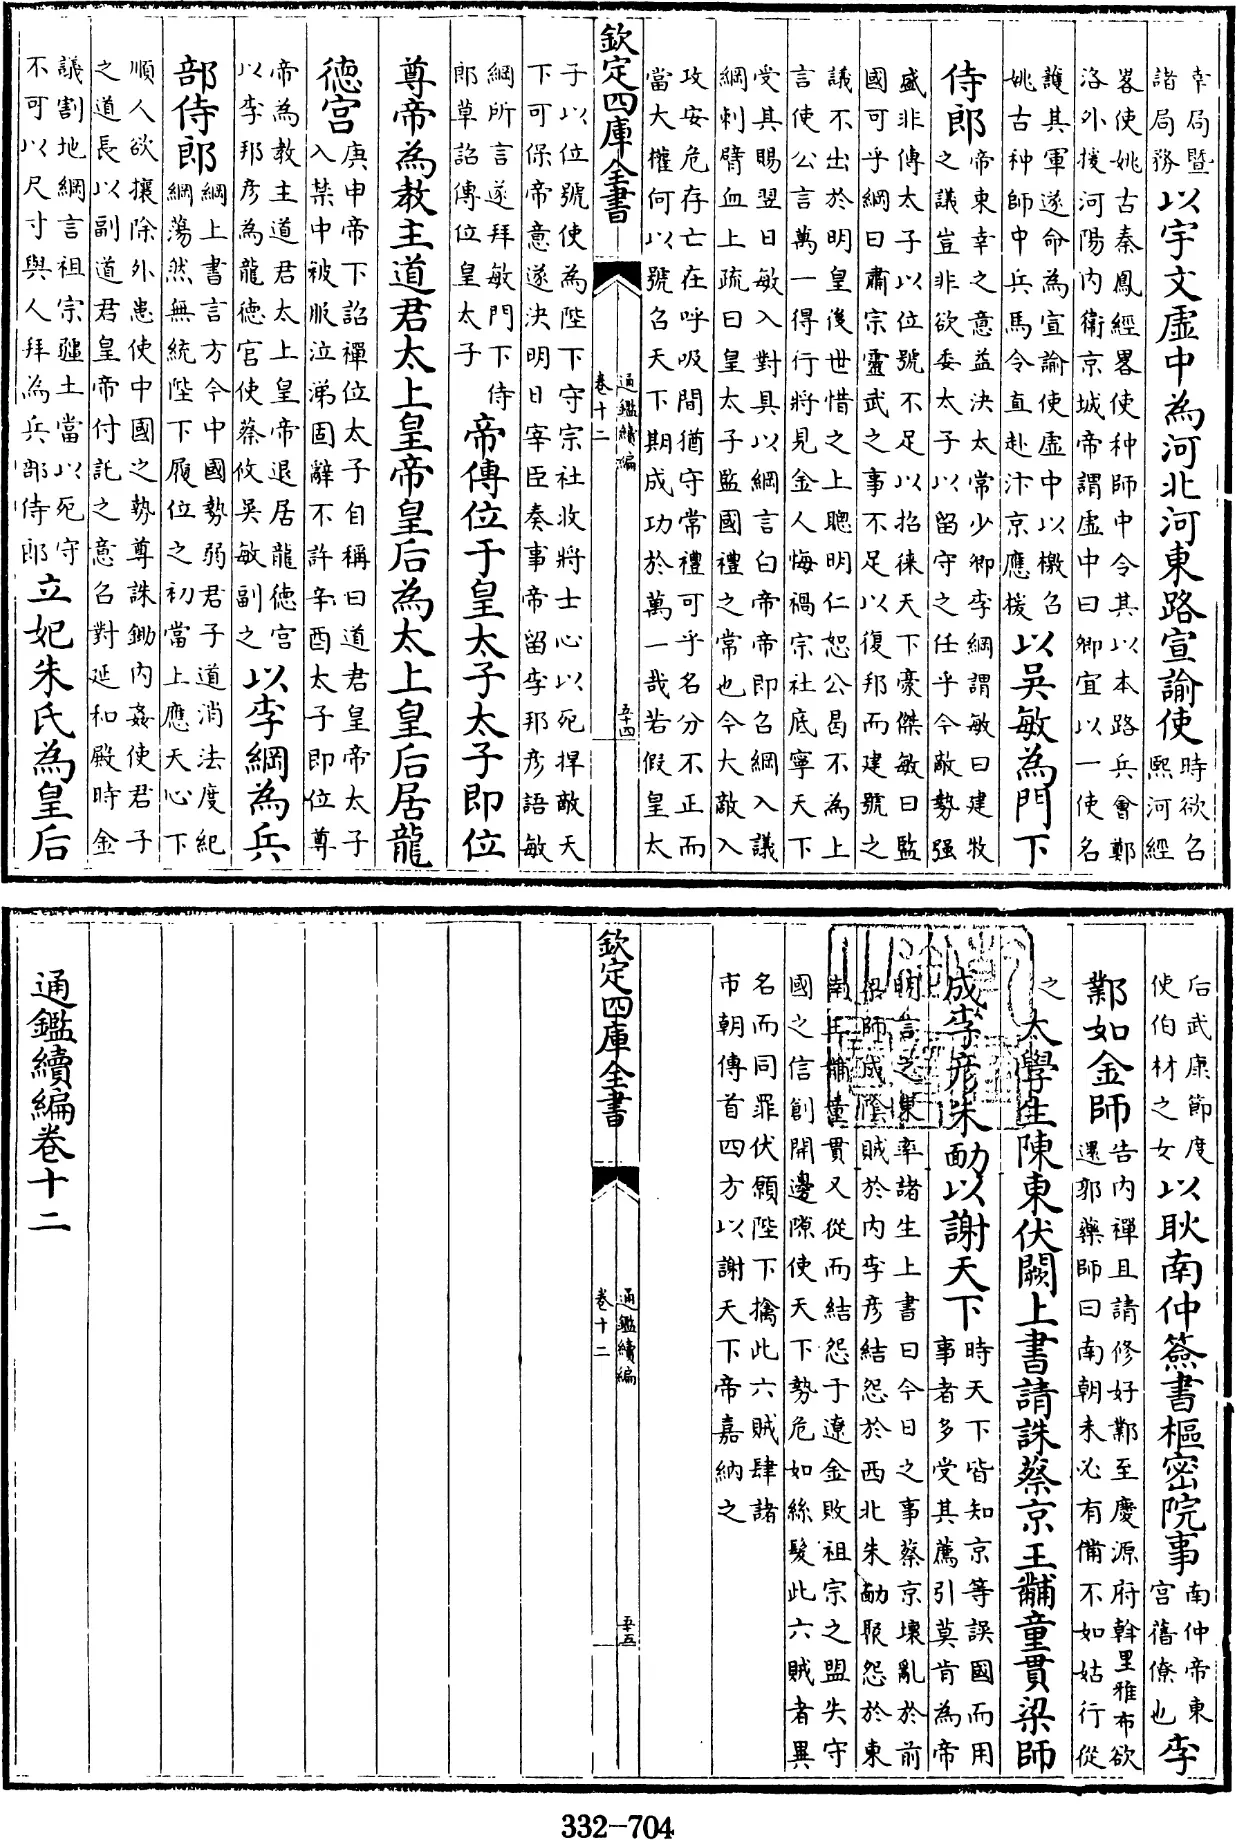 幸局暨
諸局務
以宇文虛中為河北河東路宣諭使
時欲召
熙河經
畧使姚古秦鳳經畧使种師中令其以本路兵會鄭
洛外援河陽內衛京城帝謂虛中曰卿宜以一使名
護其軍遂命為宣諭使虛中以檄召
姚古种師中兵馬令直赴汴京應援
以吳敏為門下
侍郎
帝東幸之意益決太常少卿李綱謂敏曰建牧
之議豈非欲委太子以留守之任乎今敵勢强
盛非傳太子以位號不足以招徠天下豪傑敏曰監
國可乎綱曰肅宗靈武之事不足以復邦而建號之
議不出於明皇後世惜之上聰明仁恕公曷不為上
言使公言萬一得行將見金人悔禍宗社底寧天下
受其賜翌日敏入對具以綱言白帝帝即召綱入議
綱刺臂血上疏曰皇太子監國禮之常也今大敵入
攻安危存亡在呼吸間猶守常禮可乎名分不正而
當大權何以號召天下期成功於萬一哉若假皇太
欽定四庫全書
通鑑續編
卷十二
五十四
子以位號使為陛下守宗社收將士心以死捍敵天
下可保帝意遂決明日宰臣奏事帝留李邦彥語敏
綱所言遂拜敏門下侍
郎草詔傳位皇太子
帝傳位于皇太子太子即位
尊帝為教主道君太上皇帝皇后為太上皇后居龍
德宮
庚申帝下詔禪位太子自稱曰道君皇帝太子
入禁中被服泣涕固辭不許辛酉太子即位尊
帝為教主道君太上皇帝退居龍德宮
以李邦彥為龍德宮使蔡攸吳敏副之
以李綱為兵
部侍郎
綱上書言方今中國勢弱君子道消法度紀
綱蕩然無統陛下履位之初當上應天心下
順人欲攘除外患使中國之勢尊誅鋤內姦使君子
之道長以副道君皇帝付託之意召對延和殿時金
議割地綱言祖宗疆土當以死守
不可以尺寸與人拜為兵部侍郎
立妃朱氏為皇后
后武康節度
使伯材之女
以耿南仲簽書樞密院事
南仲帝東
宮舊僚也
李
鄴如金師
告內禪且請修好鄴至慶源府斡里雅布欲
還郭藥師曰南朝未必有備不如姑行從
之
太學生陳東伏闕上書請誅蔡京王黼童貫梁師
成李彥朱勔以謝天下
時天下皆知京等誤國而用
事者多受其薦引莫肯為帝
明言之東率諸生上書曰今日之事蔡京壞亂於前
梁師成陰賊於內李彥結怨於西北朱勔聚怨於東
南王黼童貫又從而結怨于遼金敗祖宗之盟失守
國之信創開邊隙使天下勢危如絲髮此六賊者異
名而同罪伏願陛下擒此六賊肆諸
市朝傳首四方以謝天下帝嘉納之
欽定四庫全書
通鑑續編
卷十二
五十五
通鑑續編卷十二
332-704